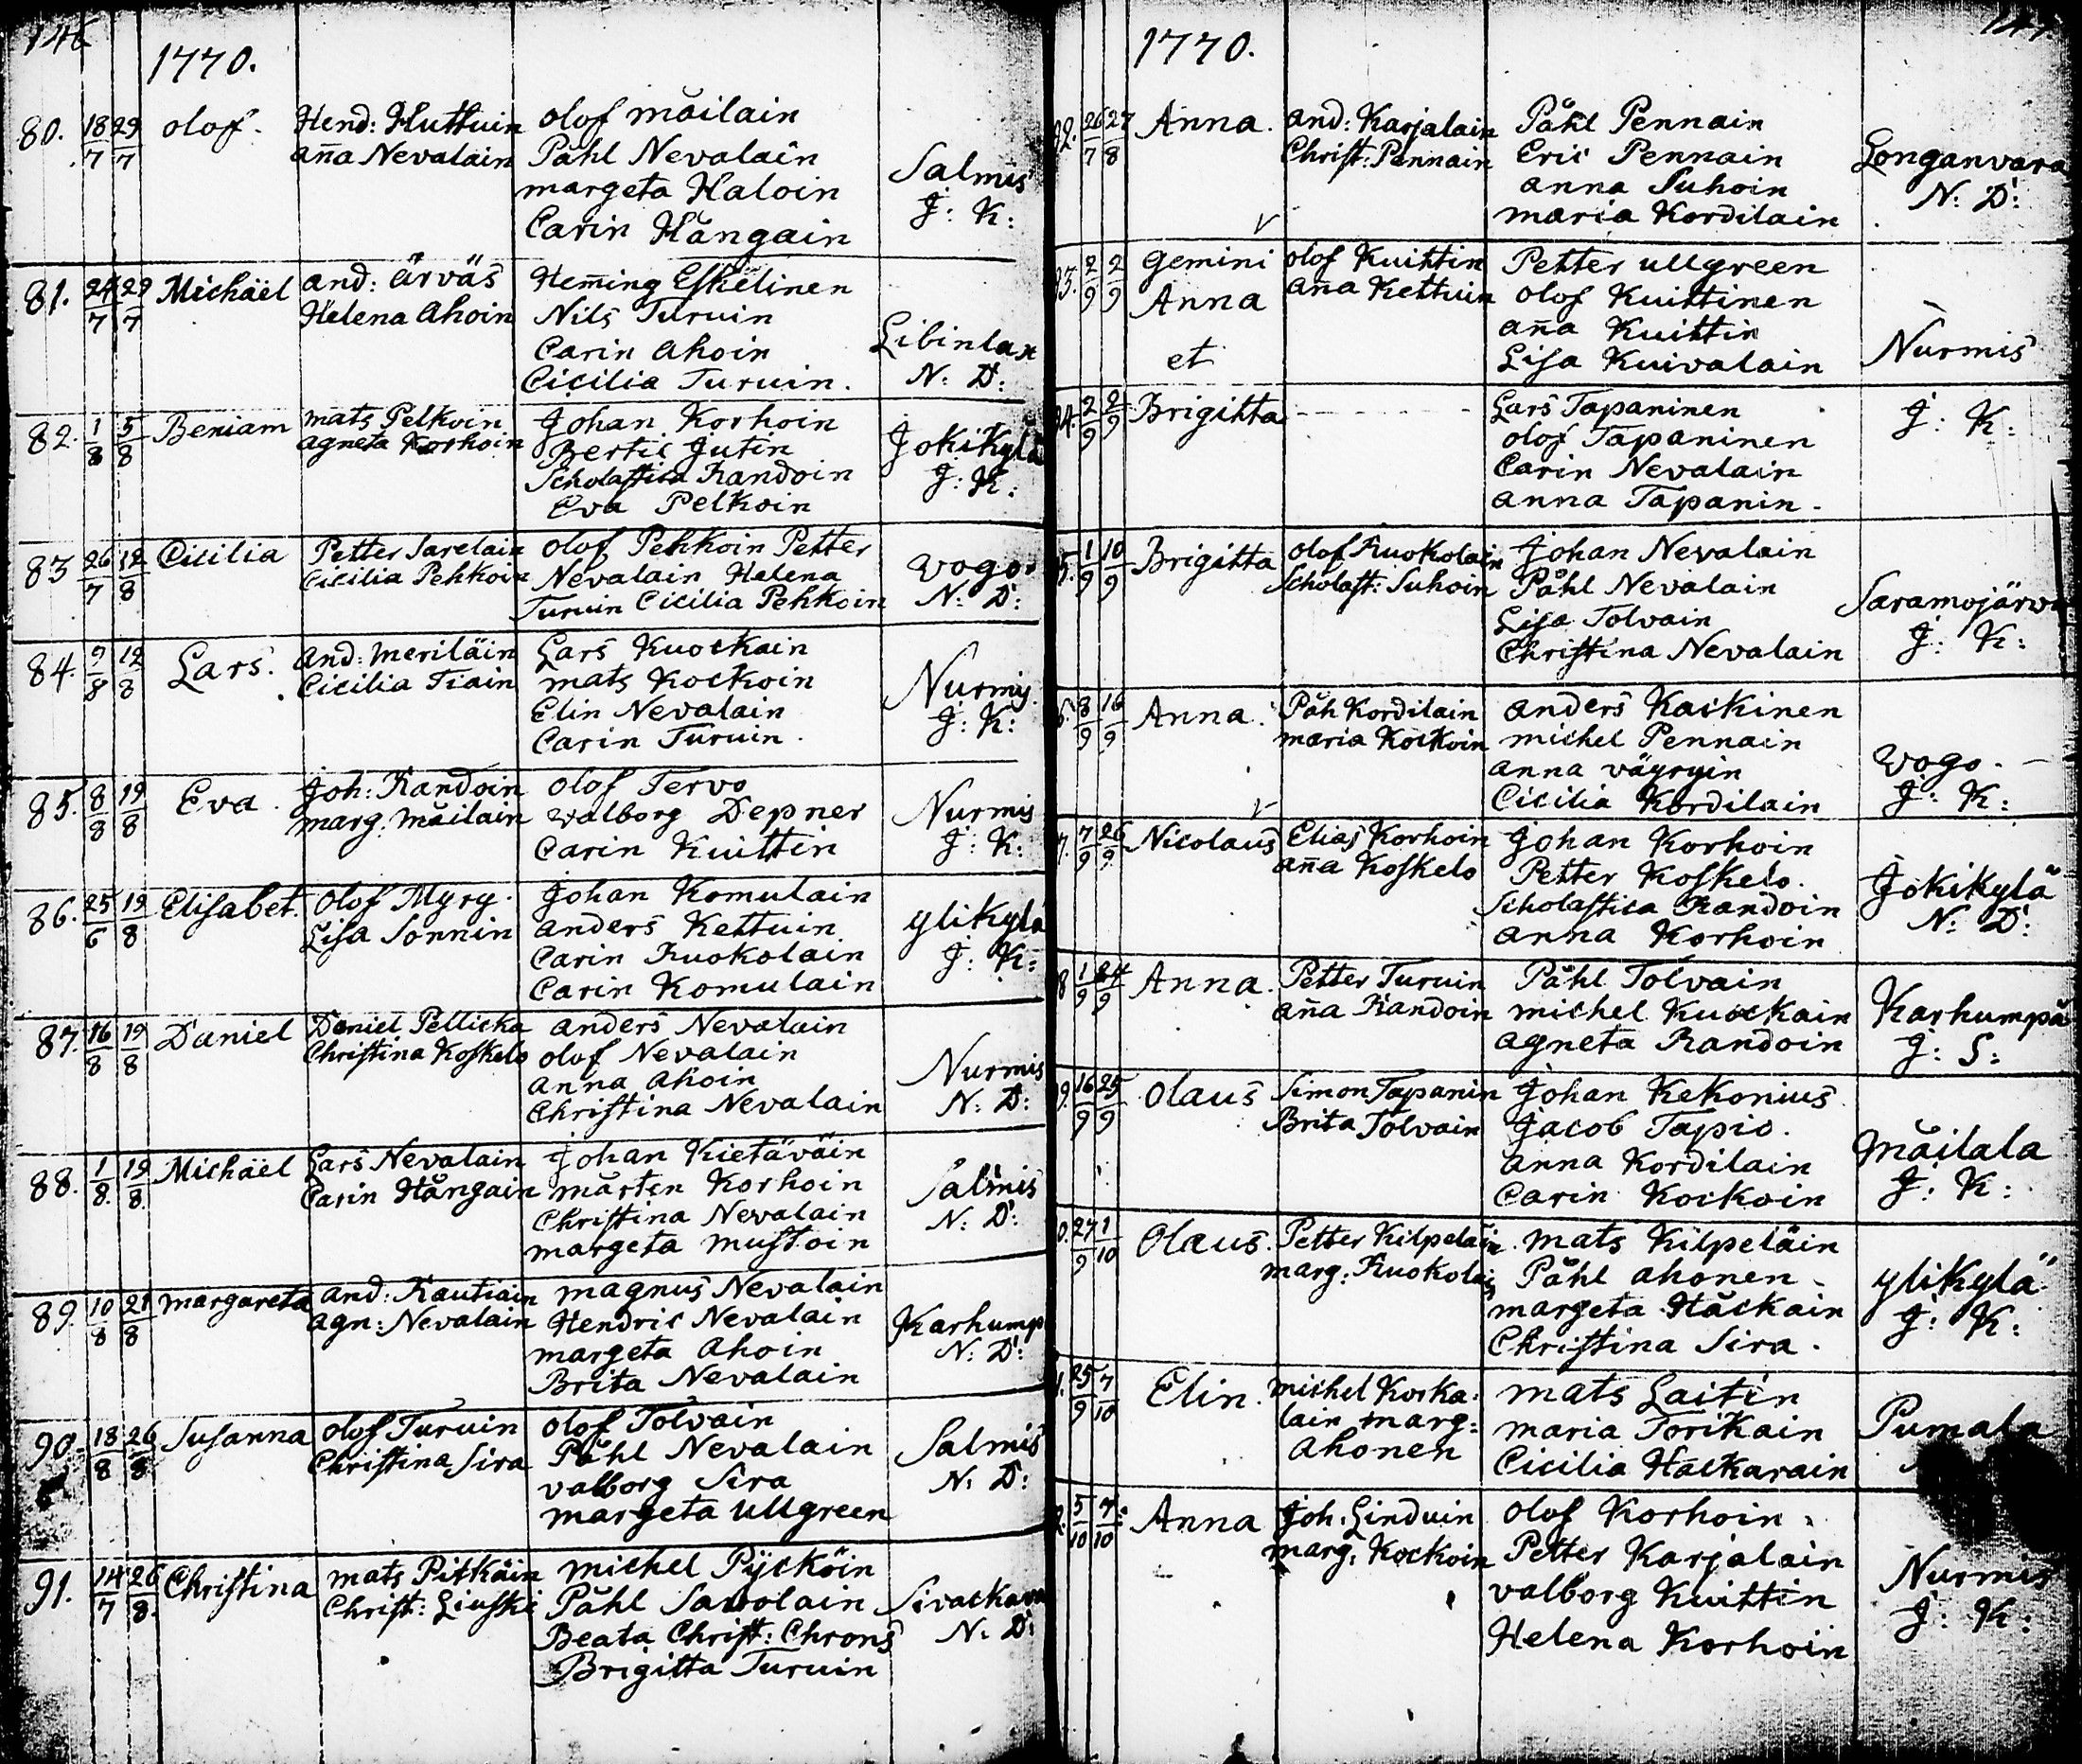 146
1770.
80. 18/7 29/7 olof. Hend: Huttuin olof mäilain
aña Nevalain Påhl Nevalain
margeta Haloin Salmis
Carin Hångain J: K:
81. 24/7 29/7 Michäel and: ärväs Heming Eskelinen
Helena Ahoin Nils Turuin
Carin Ahoin Libinlax
Cicilia Turuin. N: D:
82. 1/8 5/8 Beniam mats Pelkoin Johan Korhoin
agneta Korhoin Bertil Jutin Jokikylä
Scholastica Randoin J: K:
Eva Pelkoin
83 26/7 12/8 Cicilia Petter Sarelain olof Pehkoin Petter
Cicilia Pehkoin Nevalain Helena wogo.
Turuin Cicilia Pehkoin N: D:
84. 9/8 12/8 Lars. and: meriläin Lars Kuockain
Cicilia Tiain mats Kockoin Nurmis
Elin Nevalain J: K:
Carin Turuin.
85. 8/8 19/8 Eva. Joh: Randoin olof Tervo
marg: mäilain walborg Depner Nurmis
Carin Kuittin J: K:
86. 25/6 19/8 Elisabet. olof Myry. Johan Komulain
Lisa Sonnin anders Kettuin ylikylä
Carin Ruokolain J: K:
Carin Komulain
87. 16/8 19/8 Daniel Daniel Pellicka anders Nevalain
Christina Koskelo olof Nevalain
anna ahoin Nurmis
Christina Nevalain N: D:
88. 1/8. 19/8. Michäel Lars Nevalain Johan Kietäväin
Carin Hångain mårten Korhoin Salmis
Christina Nevalain N: D:
margeta mustoin
89. 10/8 21/8 margareta and: Rautiain magnus Nevalain
agn: Nevalain Hendric Nevalain Karhump
margeta ahoin N: D:
Brita Nevalain
90. 18/8 26/8 Susanna olof Turuin olof Tolvain
Christina Sira Påhl Nevalain Salmis
valborg Sira N: D:
margeta ullgreen
91. 14/7 26/8. Christina mats Pitkäin michel Pijcköin
Christ: Liuski Påhl Savolain
Beata Christ: Chrons N: D:
Brigitta Turuin
1770.
26/7 27/8 Anna. and: Karjalain Påhl Pennain
Christ: Pennain Eric Pennain Longanvara
anna Suhoin N: D:
maria Kordilain
2/9 2/9 Gemini olof Kuittin Petter ullgreen
Anna aña Kettuin olof Kuittinen
aña Kuittin
et Lisa Kuivalain Nurmis
2/9 2/9 Brigitta Lars Tapaninen J: K:
olof Tapaninen
Carin Nevalain
anna Tapanin.
1/9 10/9 Brigitta olof Ruokolain Johan Nevalain
Scholast: Suhoin Påhl Nevalain Saramojärw
Lisa Tolvain J: K:
Christina Nevalain
8/9 16/9 Anna. Påh Kordilain anders Kackinen
maria Kockoin michel Pennain
anna väyryin wogo.
Cicilia Kordilain J: K:
7/9 26/9 Nicolaus Elias Korhoin Johan Korhoin
aña Koskelo Petter Koskelo. Jokikylä
Scholastica Randoin N: D:
anna Korhoin
1/9 24/9 Anna. Petter Turuin Påhl Tolvain
aña Randoin michel Kuockain Karhumpä
agneta Randoin J: S:
16/9 25/9 olaus Simon Tapanin Johan Kekonius
Brita Tolvain Jacob Tapio.
anna Kordilain mäilala
Carin Kockoin J: K:
27/9 1/10 olaus. Petter Kilpeläin mats Kilpeläin
marg: Ruokolain Påhl ahonen ylikylä
margeta Håckain J: K:
Christina Sira.
25/9 7/10 Elin. michel Korka: mats Laitin
lain marg: maria Torikain Pumala
Ahonen Cicilia Hackarain
5/10 7/10 Anna Joh: Linduin olof Korhoin
marg: Kockoin Petter Karjalain Nurmis
valborg Kuittin J: K:
Helena Korhoin